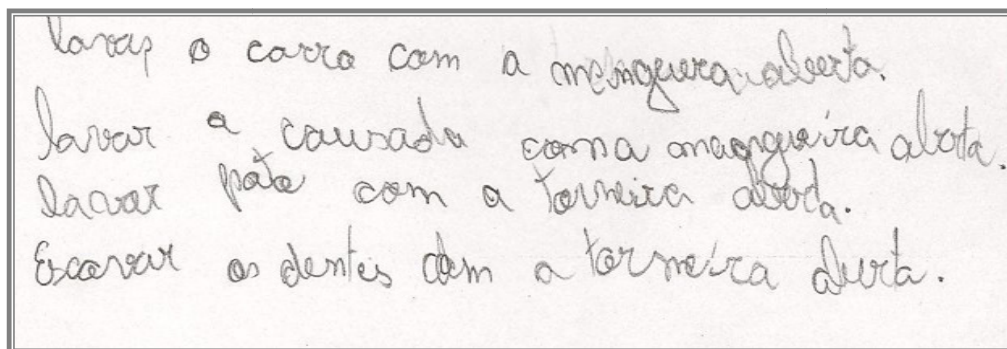 lavar o carro com a menguera aberta.
lavar a causada coma maongueira aberta.
lavar pato com a torneira aberta.
Escovar os dentes com a torneira aberta.